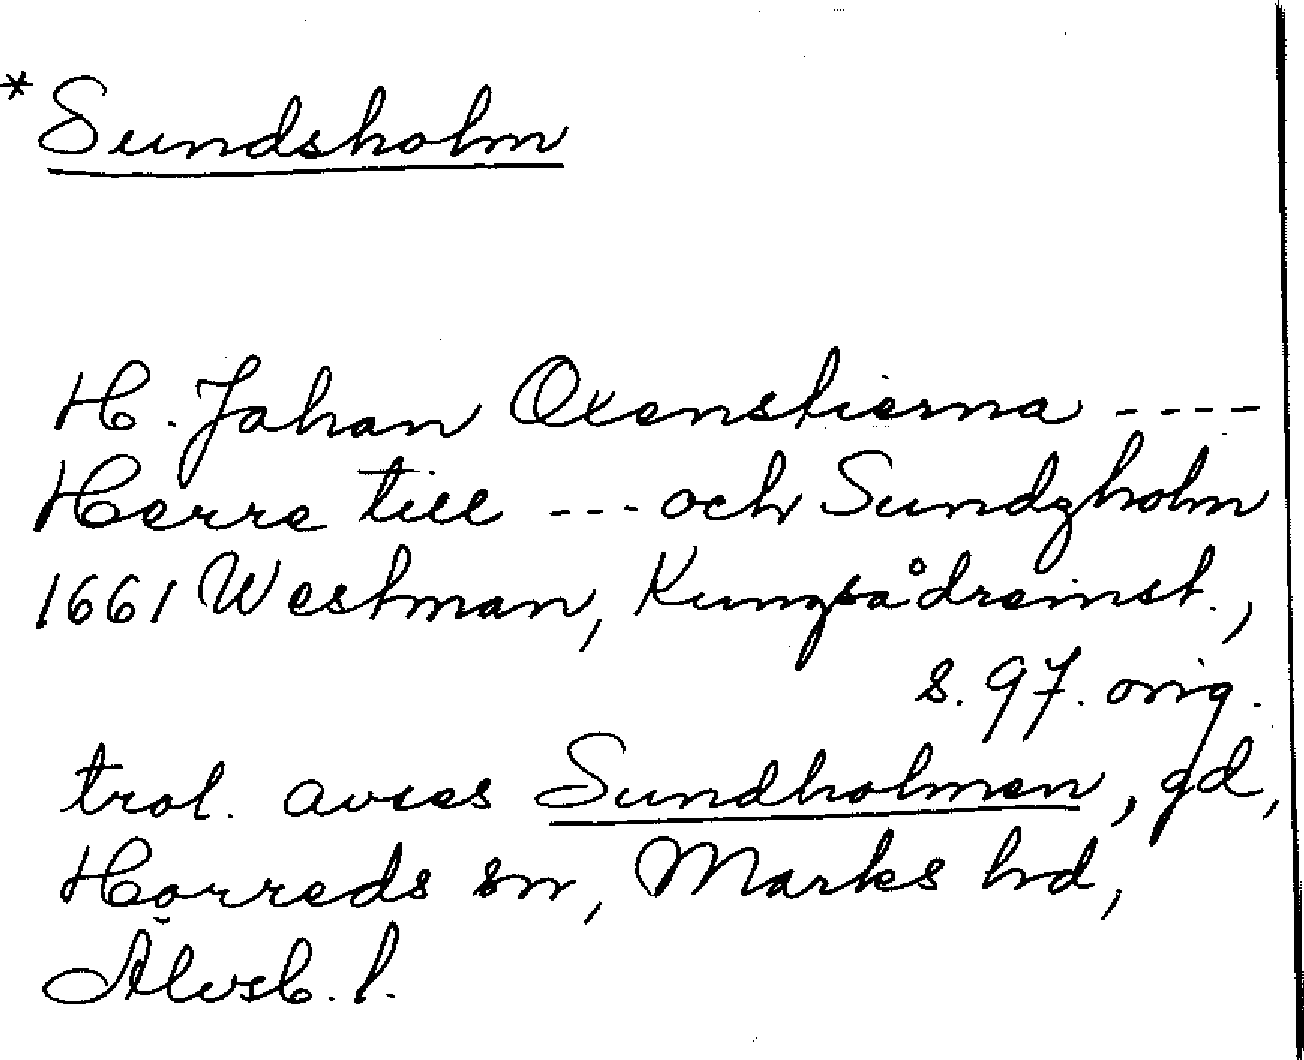 *Sundsholm
H. Johan Oxenstierna ----
Herre till --- och Sundzholm
1661 Westman, Kungsådreinst.,
s. 97. orig.
trol. avses Sundholmen, gd,
Horreds sn, Marks hd,
Älvsb. l.